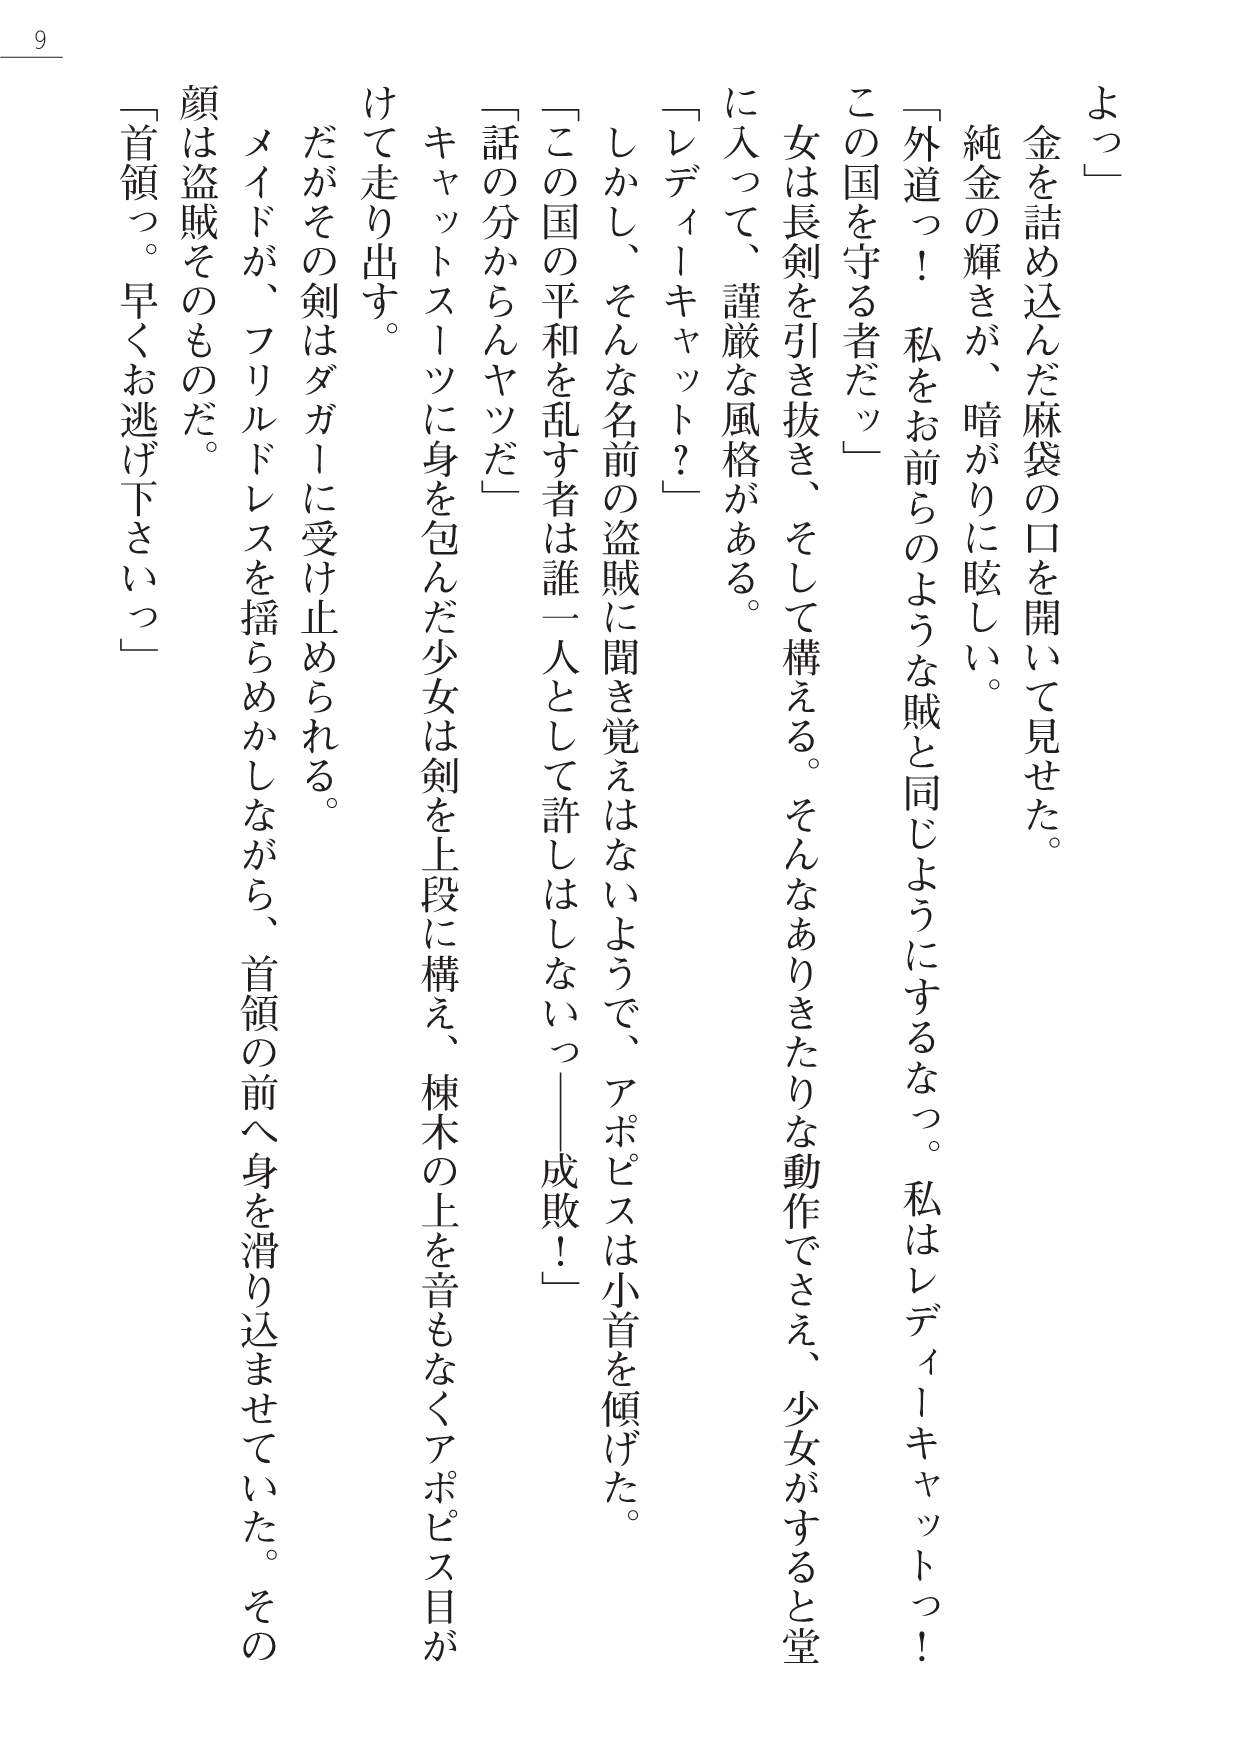 9
よっ」
　金を詰め込んだ麻袋の口を開いて見せた。
　純金の輝きが、暗がりに眩しい。
「外道っ！　私をお前らのような賊と同じようにするなっ。私はレディーキャットっ！
この国を守る者だッ」
　女は長剣を引き抜き、そして構える。そんなありきたりな動作でさえ、少女がすると堂
に入って、謹厳な風格がある。
「レディーキャット？」
　しかし、そんな名前の盗賊に聞き覚えはないようで、アポピスは小首を傾げた。
「この国の平和を乱す者は誰一人として許しはしないっ――成敗！」
「話の分からんヤツだ」
　キャットスーツに身を包んだ少女は剣を上段に構え、棟木の上を音もなくアポピス目が
けて走り出す。
　だがその剣はダガーに受け止められる。
　メイドが、フリルドレスを揺らめかしながら、首領の前へ身を滑り込ませていた。その
顔は盗賊そのものだ。
「首領っ。早くお逃げ下さいっ」